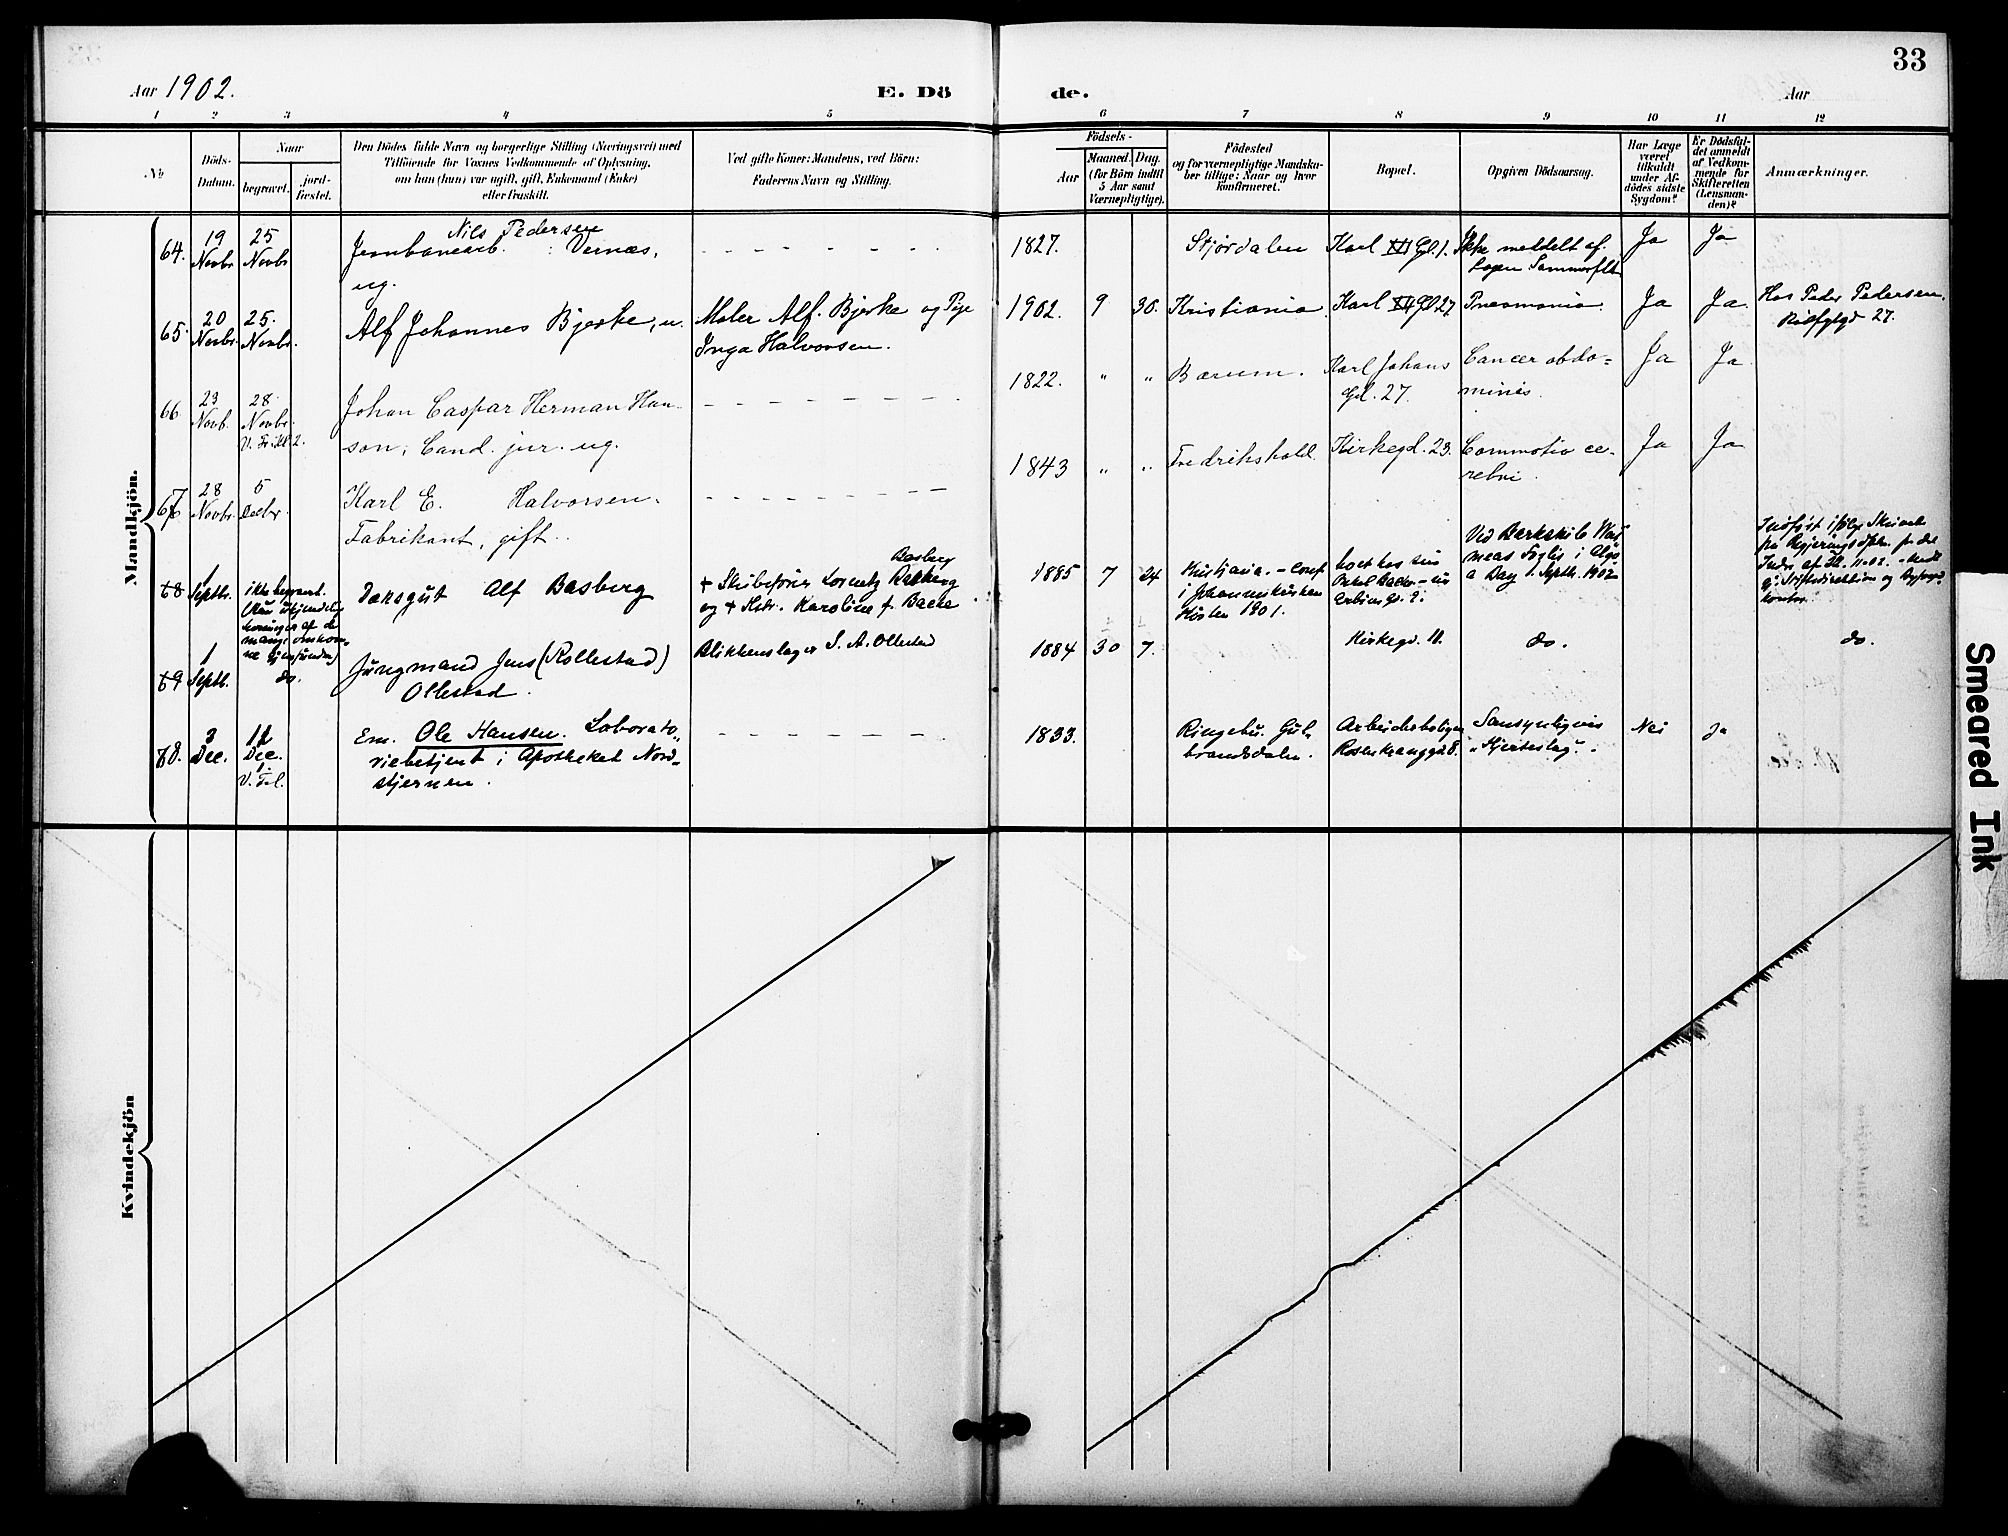 33
Aar 1902.
E. Dö
de.
Aar
1 2 3 4 5 6 7 8 9 10 11 12
No
Döds-
Datum.
Naar
begravet.
jord-
fæstet.
Den Dödes fulde Navn og borgerlige Stilling (Næringsvei) med
Tilföiende for Voxnes Vedkommende af Oplysning,
om han (hun) var ugift, gift, Enkemand (Enke)
eller fraskilt.
Ved gifte Koner: Mandens, ved Börn:
Faderens Navn og Stilling.
Födsels-
Aar
Maaned. Dag.
(for Börn indtil
5 Aar samt
Værnepligtige).
Födested
og for værnepligtige Mandska-
ber tillige: Naar og hvor
konfirmeret.
Bopæl.
Opgiven Dödsaarsag.
Har Læge
været
tilkaldt
under Af-
dödes sidste
Sygdom?
Er Dødsfal-
det anmeldt
af Vedkom-
mende for
Skifteretten
(Lensman-
den)?
Anmærkninger.
Mandkjön.
64.
19
Novbr
25
Novbr
Nils Pedersen
Jernbanearb. : Værnæs,
ug.
1827.
Stjørdalen
Karl XII Gd. 1.
Ikke meldelt af
Ja
Ja
65.
20
Novbr.
25.
Novbr.
Alf Johannes Bjerke, u.
Maler Alf. Bjerke og Pige
Inga Halvorsen.
1902. 9 30.
Kristiania
Karl XII Gd 27
Pneumonia
Ja
Ja.
Hos Peder Pedersen,
27.
66.
23
Novb.
28
Novbr.
Johan Caspar Herman Han-
son, Cand. jur. ug.
1822. " "
Bærum.
Karl Johans
Gd. 27.
Cancer abdo=
minis.
Ja
Ja
67
28
Novbr.
5
Decbr
Karl E. Halvorsen.
Fabrikant, gift.
1843 " "
Fredrikshald.
Kirkegd. 23.
Commotio ce-
rebri.
Ja
Ja
68
1
Septbr.
ikke begravet.
Dæksgut Alf Basberg
Basberg
+ Skibsfører Lorentz
og + Hstr. Karoline f. Backe.
1885 7 24
Kristiania. - conf
i Johanneskirken
Høsten 1901.
boet hos sin
Onkel Backe
Ved Barkskib
Forlis i
a Bay 1. Septbr. 1902
69
1
Septb.
do.
Jungmand Jens (Rollestad)
Ollestad.
Blikkenslager S. A. Ollestad
1884 30 7.
Kirkegd. 11.
do.
do.
70.
3
Dec.
12
Dec.
Em. Ole Hansen. Laborato-
riebetjent i Apotheket Nord-
stjernen.
1833.
Ringebu. Gud-
brandsdalen.
Arbeiderboligen
Rosenkrantzgd. 8.
Sansynligvis
"Hjerteslag".
Nei
Ja
Kvindekjön
Smeared Ink